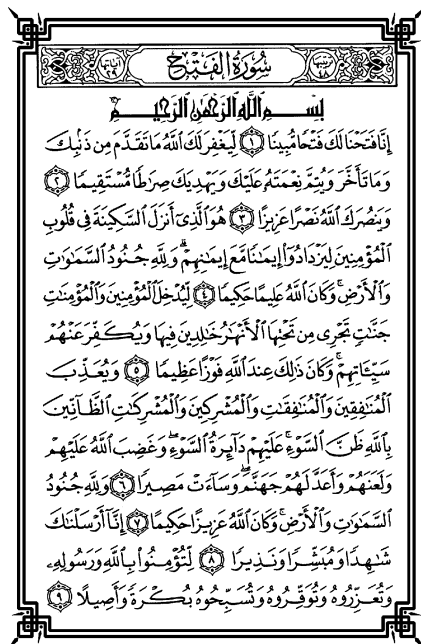 ترتيبها ٤٨ سُورَةُ الفَتْحِ آياتها ٢٩
بِسْمِ اللَّهِ الرَّحْمَٰنِ الرَّحِيمِ
إِنَّا فَتَحْنَا لَكَ فَتْحًا مُّبِينًا ١ لِّيَغْفِرَ لَكَ اللَّهُ مَا تَقَدَّمَ مِن ذَنۢبِكَ
وَمَا تَأَخَّرَ وَيُتِمَّ نِعْمَتَهُۥ عَلَيْكَ وَيَهْدِيَكَ صِرَٰطًا مُّسْتَقِيمًا ٢
وَيَنصُرَكَ اللَّهُ نَصْرًا عَزِيزًا ٣ هُوَ الَّذِىٓ أَنزَلَ السَّكِينَةَ فِى قُلُوبِ
الْمُؤْمِنِينَ لِيَزْدَادُوٓا۟ إِيمَٰنًا مَّعَ إِيمَٰنِهِمْ ۗ وَلِلَّهِ جُنُودُ السَّمَٰوَٰتِ
وَالْأَرْضِ ۚ وَكَانَ اللَّهُ عَلِيمًا حَكِيمًا ٤ لِّيُدْخِلَ الْمُؤْمِنِينَ وَالْمُؤْمِنَٰتِ
جَنَّٰتٍ تَجْرِى مِن تَحْتِهَا الْأَنْهَٰرُ خَٰلِدِينَ فِيهَا وَيُكَفِّرَ عَنْهُمْ
سَيِّـَٔاتِهِمْ ۚ وَكَانَ ذَٰلِكَ عِندَ اللَّهِ فَوْزًا عَظِيمًا ٥ وَيُعَذِّبَ
الْمُنَٰفِقِينَ وَالْمُنَٰفِقَٰتِ وَالْمُشْرِكِينَ وَالْمُشْرِكَٰتِ الظَّآنِّينَ
بِاللَّهِ ظَنَّ السَّوْءِ ۚ عَلَيْهِمْ دَآئِرَةُ السَّوْءِ ۖ وَغَضِبَ اللَّهُ عَلَيْهِمْ
وَلَعَنَهُمْ وَأَعَدَّ لَهُمْ جَهَنَّمَ ۖ وَسَآءَتْ مَصِيرًا ٦ وَلِلَّهِ جُنُودُ
السَّمَٰوَٰتِ وَالْأَرْضِ ۚ وَكَانَ اللَّهُ عَزِيزًا حَكِيمًا ٧ إِنَّآ أَرْسَلْنَٰكَ
شَٰهِدًا وَمُبَشِّرًا وَنَذِيرًا ٨ لِّتُؤْمِنُوا۟ بِاللَّهِ وَرَسُولِهِۦ
وَتُعَزِّرُوهُ وَتُوَقِّرُوهُ وَتُسَبِّحُوهُ بُكْرَةً وَأَصِيلًا ٩